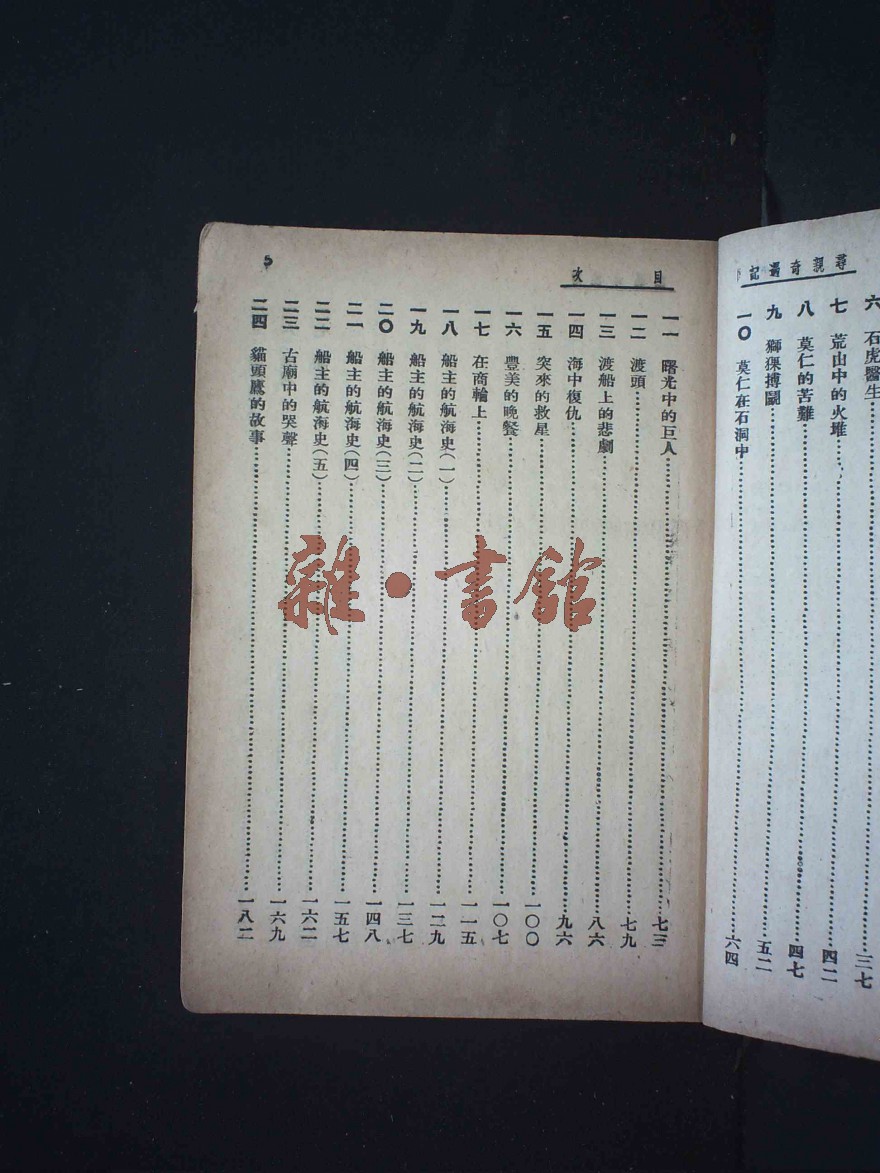 尋親奇遇記
六 石虎醫生 三七
七 荒山中的火堆 四二
八 莫仁的苦難 四七
九 獅猓搏鬭 五二
一〇 莫仁在石洞中 六四
目 次
5
一一 曙光中的巨人 七三
一二 渡頭 七九
一三 渡船上的悲劇 八六
一四 海中復仇 九六
一五 突來的救星 一〇〇
一六 豐美的晚餐 一〇七
一七 在商輪上 一一五
一八 船主的航海史(一) 一二九
一九 船主的航海史(二) 一三七
二〇 船主的航海史(三) 一四八
二一 船主的航海史(四) 一五七
二二 船主的航海史(五) 一六二
二三 古廟中的哭聲 一六九
二四 貓頭鷹的故事 一八二
雜·書館